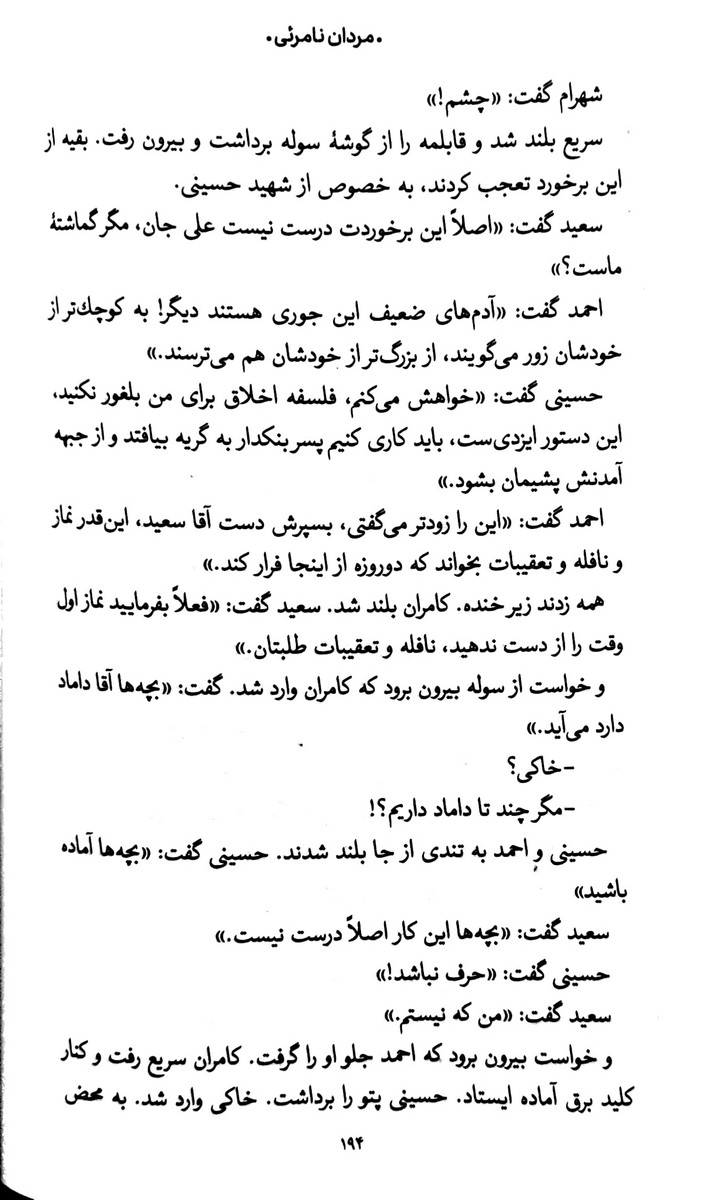 • مردان نامرئی •
شهرام گفت: «چشم!»
سریع بلند شد و قابلمه را از گوشهٔ سوله برداشت و بیرون رفت. بقیه از
این برخورد تعجب کردند، به خصوص از شهید حسینی.
سعید گفت: «اصلاً این برخوردت درست نیست علی جان، مگر گماشتهٔ
ماست؟»
احمد گفت: «آدم‌های ضعیف این جوری هستند دیگر! به کوچك‌تر از
خودشان زور می‌گویند، از بزرگ‌تر از خودشان هم می‌ترسند.»
حسینی گفت: «خواهش می‌کنم، فلسفه اخلاق برای من بلغور نکنید،
این دستور ایزدی‌ست، باید کاری کنیم پسر بنکدار به گریه بیافتد و از جبهه
آمدنش پشیمان بشود.»
احمد گفت: «این را زودتر می‌گفتی، بسپرش دست آقا سعید، این‌قدر نماز
و نافله و تعقیبات بخواند که دوروزه از اینجا فرار کند.»
همه زدند زیر خنده. کامران بلند شد. سعید گفت: «فعلاً بفرمایید نماز اول
وقت را از دست ندهید، نافله و تعقیبات طلبتان.»
و خواست از سوله بیرون برود که کامران وارد شد. گفت: «بچه‌ها آقا داماد
دارد می‌آید.»
-خاکی؟
-مگر چند تا داماد داریم؟!
حسینی و احمد به تندی از جا بلند شدند. حسینی گفت: «بچه‌ها آماده
باشید»
سعید گفت: «بچه‌ها این کار اصلاً درست نیست.»
حسینی گفت: «حرف نباشد!»
سعید گفت: «من که نیستم.»
و خواست بیرون برود که احمد جلو او را گرفت. کامران سریع رفت و کنار
کلید برق آماده ایستاد. حسینی پتو را برداشت. خاکی وارد شد. به محض
۱۹۴